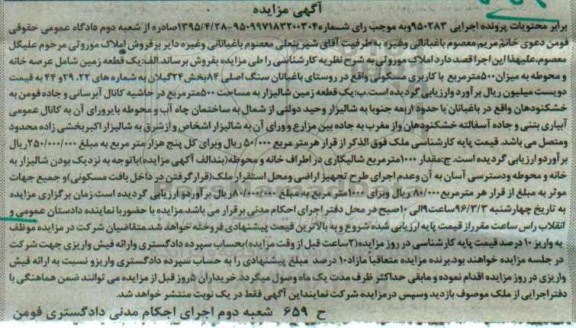 آگهی مزایده
برابر محتویات پرونده اجرایی ۹۵۰۲۸۳ به موجب رای شماره ۹۵۰۹۹۷۱۸۳۲۰۰۳۰۴-۱۳۹۵/۴/۲۸ صادره از شعبه دوم دادگاه عمومی حقوقی
فومن دعوی خانم مریم معصوم باغبانانی وغیره به طرفیت آقای شهریتعلی معصوم باغبانانی وغیره دایر بر فروش املاک موروثی مرحوم علیگل
معصوم، علیهذا این اجرا قصد دارد املاک موروثی به شرح نظریه کارشناسی را طی مزایده بفروش برساند. الف: یک قطعه زمین شامل عرصه خانه
و محوطه به میزان ۵۰۰ مترمربع با کاربری مسکونی واقع در روستای باغبانان سنگ اصلی ۸۴ بخش ۲۴ گیلان به شماره های ۲۲، ۲۹ و ۲۴ به قیمت
دویست میلیون ریال برآورد وارزیابی گردیده است. ب: یک قطعه زمین شالیزار به مساحت ۵۰۰۰ مترمربع در حاشیه کانال آبرسانی و جاده فومن به
خشکنودهان واقع در باغبانان با حدود اربعه جنوبا به شالیزار وحید دولتی از شمال به ساختمان چاه آب و محوطه باورای آن به کانال عمومی
آبیاری بتنی و جاده آسفالته خشکنودهان واز مغرب به جاده بین مزارع وورای آن به شالیزار اشخاص وازشرق به شالیزار اکبربخشی زاده محدود
ومتصل می باشد. قیمت پایه کارشناسی ملک فوق الذکر از قرار هر متر مربع ۵۰/۰۰۰ ریال وبرای کل پنج هزار متر مربع به مبلغ ۲۵۰/۰۰۰/۰۰۰ ریال
برآورد و ارزیابی گردیده است. ج: مقدار ۱۰۰۰ مترمربع شالیکاری در اطراف خانه و محوطه (بندالف آگهی مزایده) باتوجه به نزدیک بودن شالیزار به
خانه و محوطه ودسترسی آسان به آن وعدم اجرای طرح تجهیز اراضی ومحل استقرار ملک (قرارگرفتن در داخل بافت مسکونی) و جمیع جهات
موثر به مبلغ از قرار هر مترمربع ۸۰/۰۰۰ ریال وبرای ۱۰۰۰ متر مربع به مبلغ ۸۰/۰۰۰/۰۰۰ ریال برآورد و ارزیابی گردیده است. زمان برگزاری مزایده
به تاریخ چهارشنبه ۹۶/۳/۳ ساعت ۹ الی ۱۰ صبح در محل دفتر اجرای احکام مدنی برقرار می باشد. مزایده با حضور با نماینده دادستان عمومی و
انقلاب راس ساعت مقرر از قیمت پایه ارزیابی شده شروع و به بالاترین قیمت پیشنهادی فروخته خواهد شد. متقاضیان شرکت در مزایده موظف
به واریز ۱۰ درصد قیمت پایه کارشناسی در روز مزایده (۳ ساعت قبل از وقت مزایده) بحساب سپرده دادگستری وارائه فیش واریزی جهت شرکت
در جلسه مزایده خواهند بود. برنده مزایده متعاقبا مازاد ۱۰ درصد مبلغ پیشنهادی را به حساب سپرده دادگستری واریز و نسبت به ارائه فیش
واریزی در روز مزایده اقدام نموده و مابقی حداکثر ظرف مدت یک ماه وصول میگردد. خریداران ۵ روز قبل از مزایده می توانند ضمن هماهنگی با
دفتراجرایی از ملک موصوف بازدید وسپس در مزایده شرکت نمایند. این آگهی فقط در یک نوبت منتشر خواهد شد.
ح ۶۵۹ شعبه دوم اجرای احکام مدنی دادگستری فومن